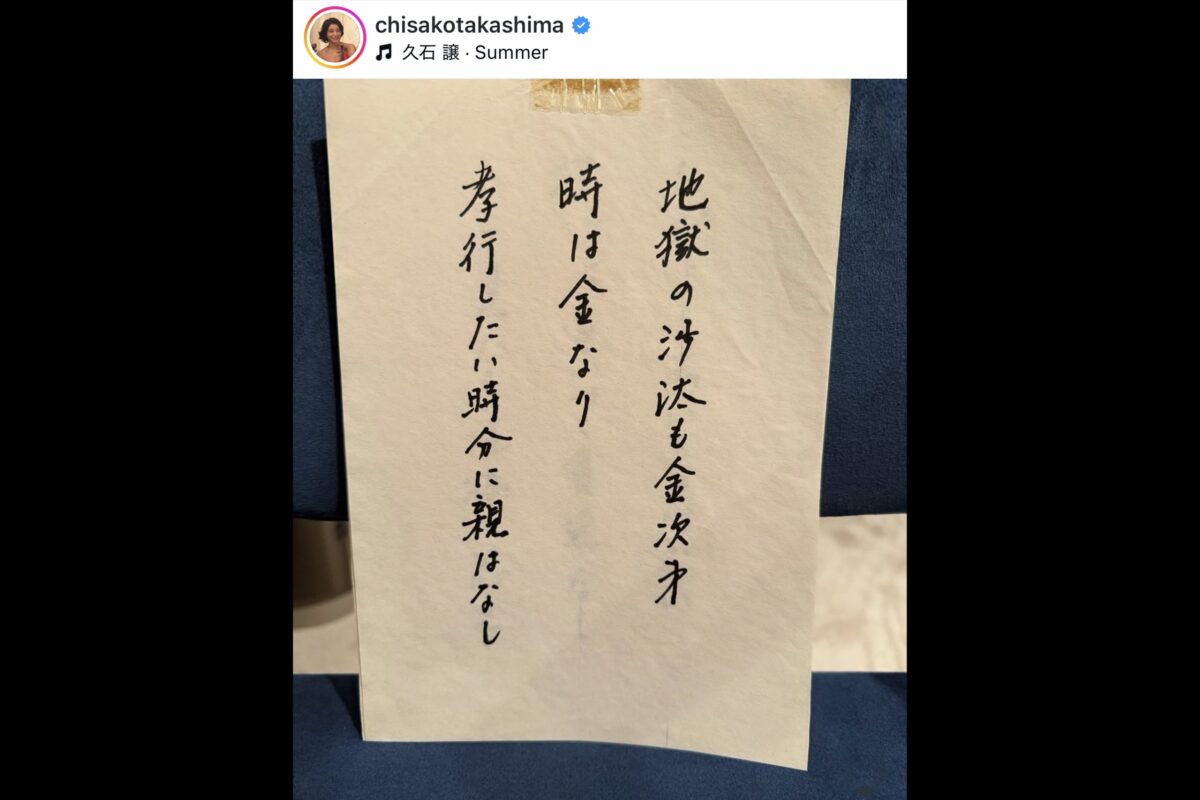 chisakotakashima
久石 譲・Summer
地獄の沙汰も金次才
時は金なり
孝行したい時分に親はなし